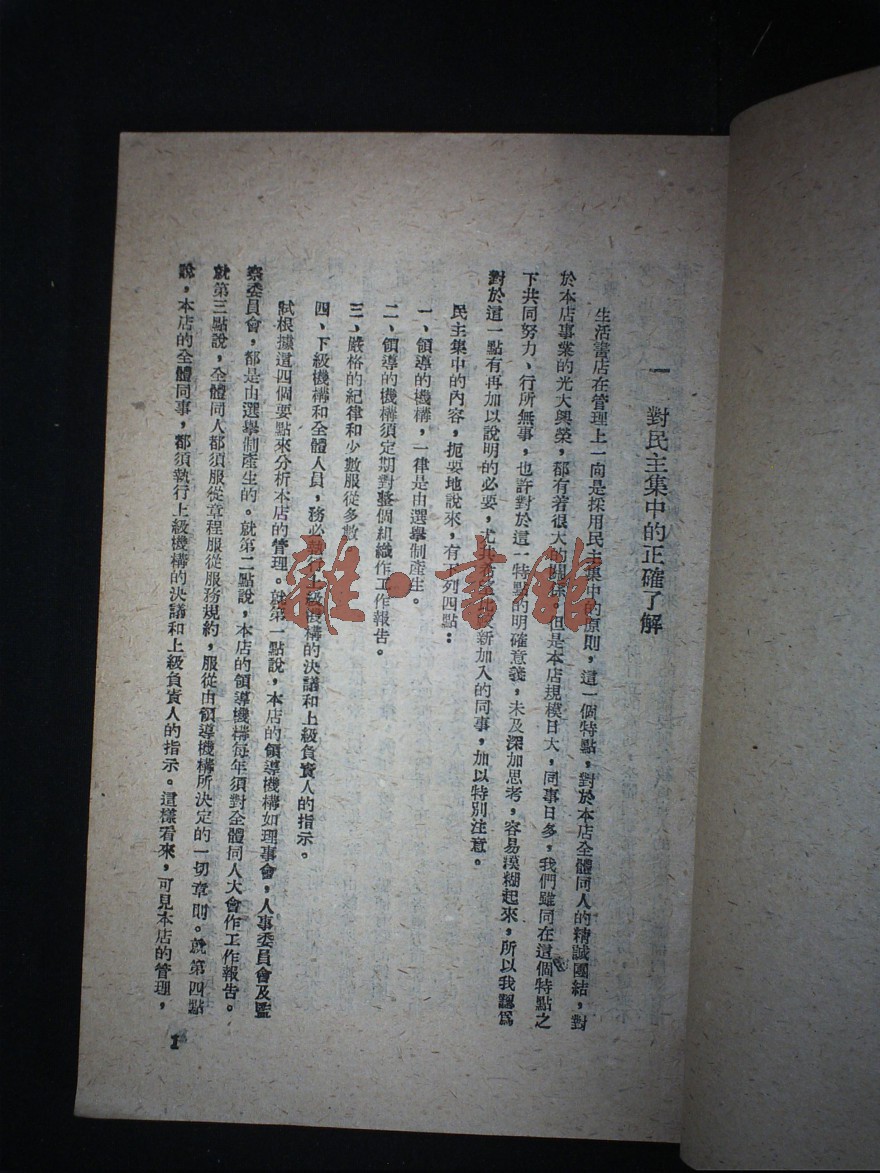 一 對民主集中的正確了解
生活書店在管理上一向是採用民主集中的原則，這一個特點，對於本店全體同人的精誠團結，對
於本店事業的光大興榮，都有着很大的關係。但是本店規模日大，同事日多，我們雖同在這個特點之
下共同努力、行所無事，也許對於這一特點的明確意義，未及深加思考，容易漠糊起來，所以我認爲
對於這一點有再加以說明的必要，尤其希望新加入的同事，加以特別注意。
民主集中的內容，扼要地說來，有下列四點：
一、領導的機構，一律是由選舉制產生。
二、領導的機構須定期對整個組織作工作報告。
三、嚴格的紀律和少數服從多數
四、下級機構和全體人員，務必執行上級機構的決議和上級負責人的指示。
試根據這四個要點來分析本店的管理。就第一點說，本店的領導機構如理事會，人事委員會及監
察委員會，都是由選舉制產生的。就第二點說，本店的領導機構每年須對全體同人大會作工作報告。
就第三點說，全體同人都須服從章程服從服務規約，服從由領導機構所決定的一切章則。就第四點
說，本店的全體同事，都須執行上級機構的決議和上級負責人的指示。這樣看來，可見本店的管理，
1
雜·書館